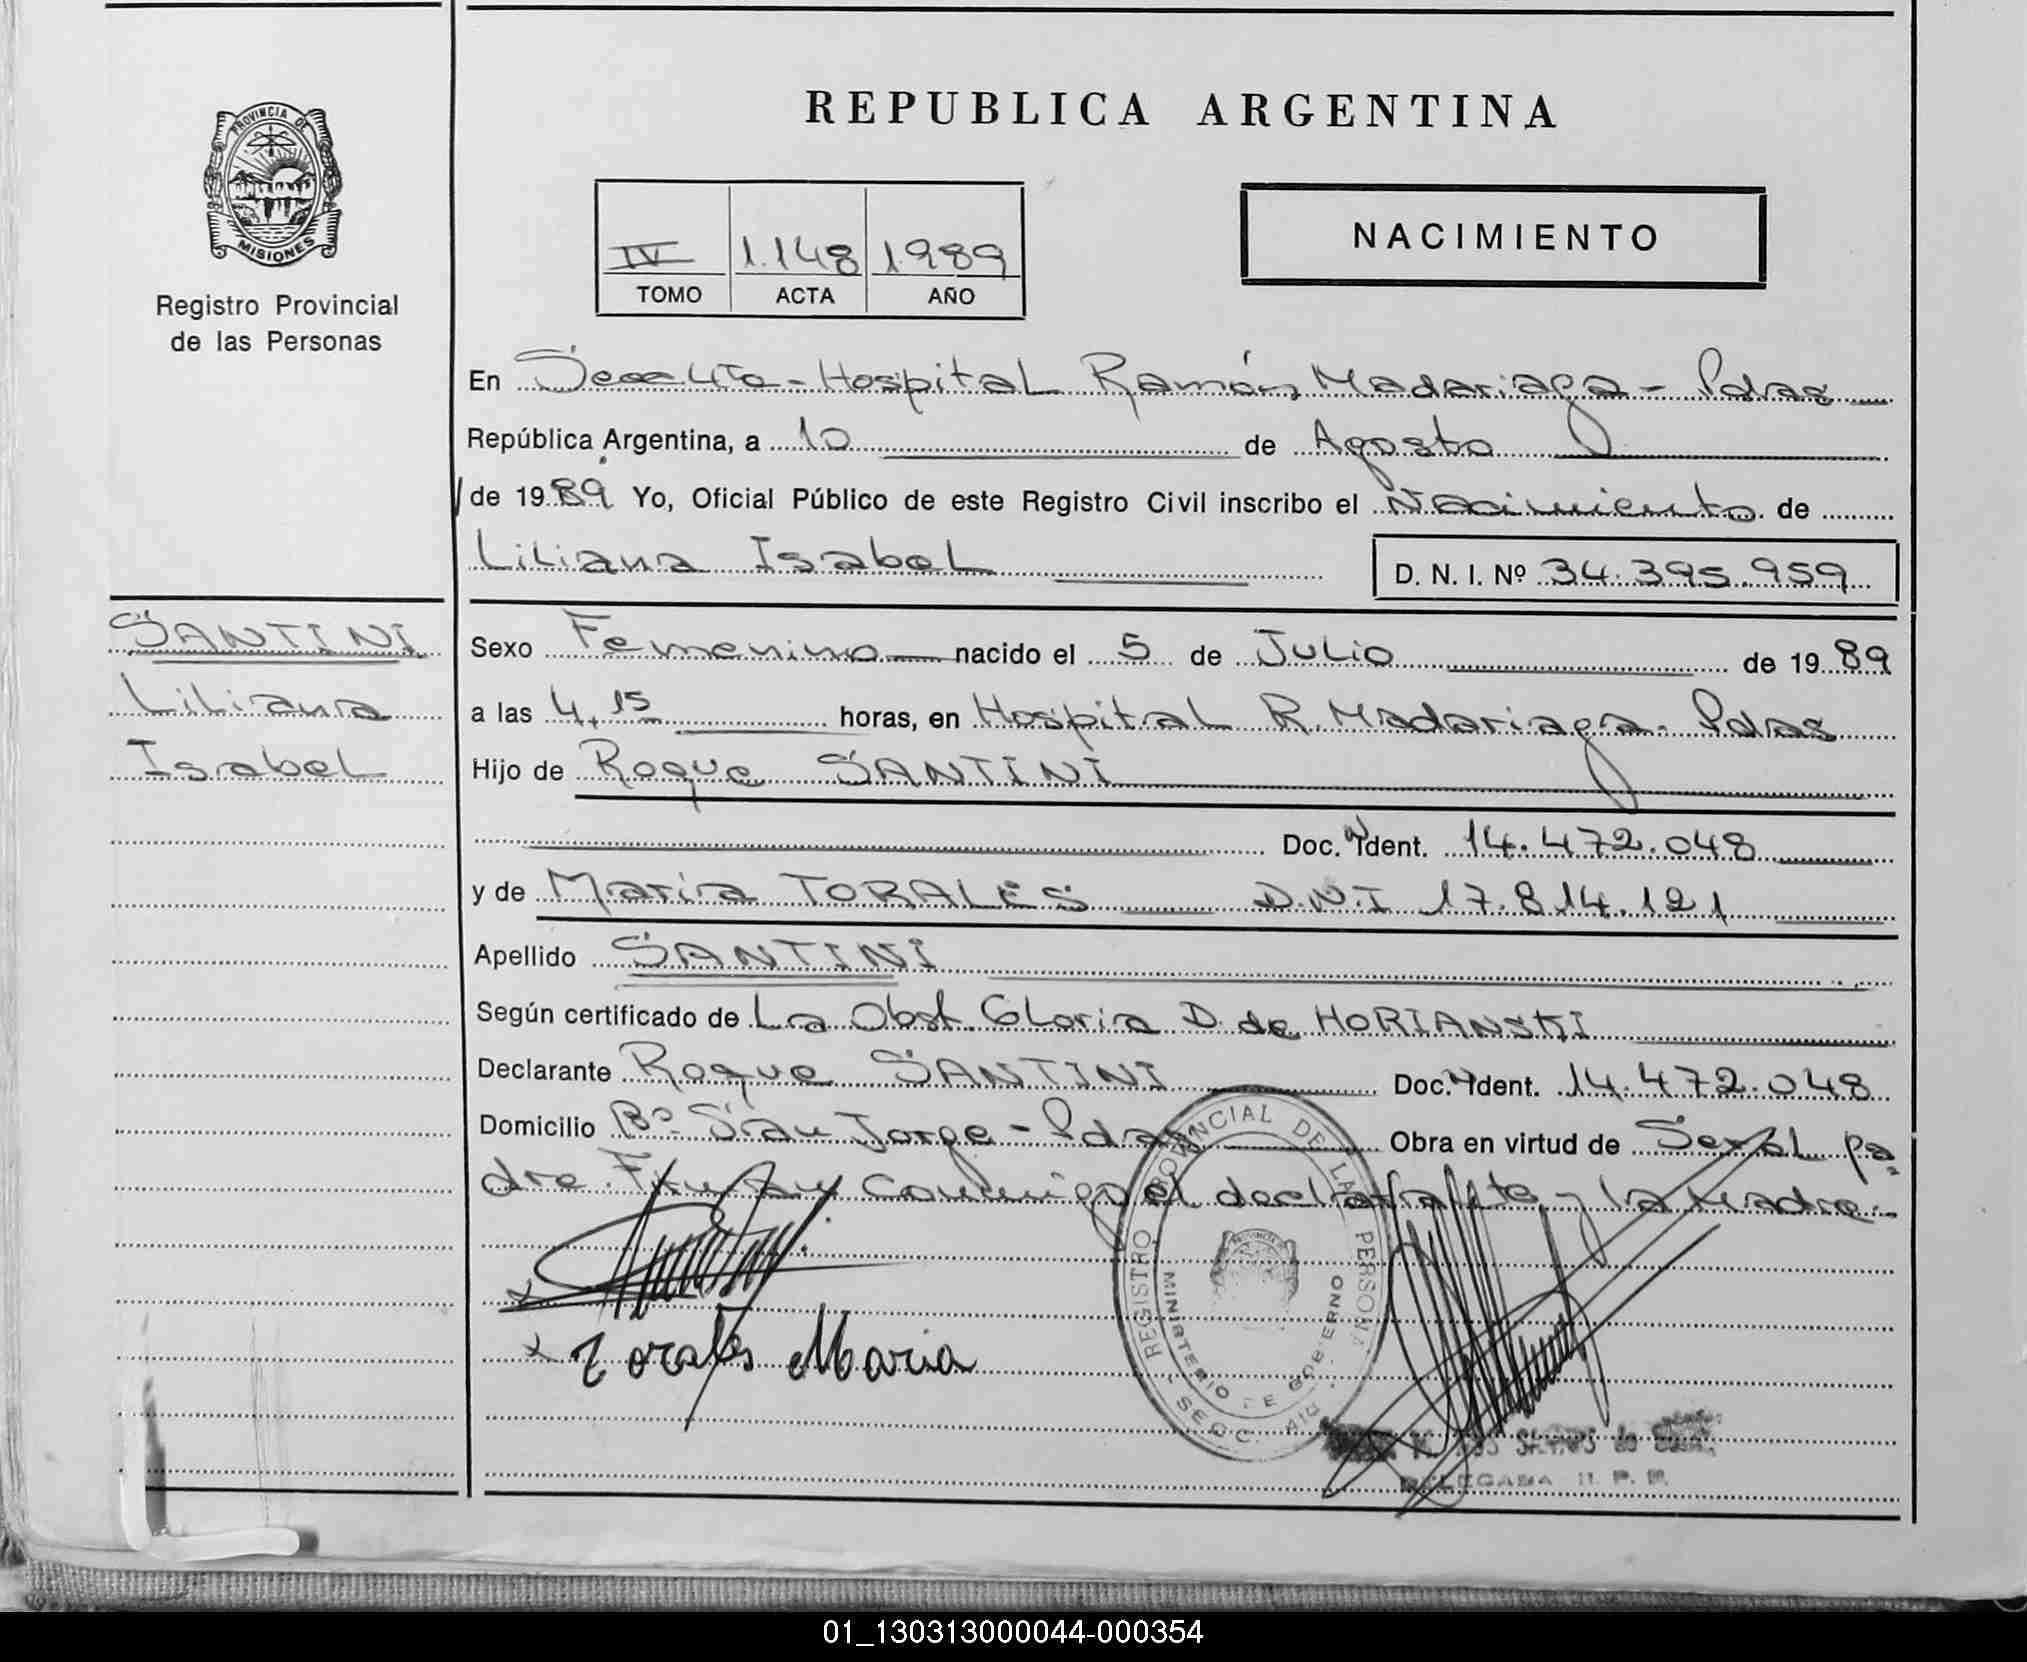 PROVINCIA DE
MISIONES
Registro Provincial
de las Personas
REPUBLICA ARGENTINA
IV 1.148 1989
TOMO ACTA AÑO
NACIMIENTO
En Secc 4ta - Hospital Ramón Madariaga - Pdas
República Argentina, a 10 de Agosto
de 1989 Yo, Oficial Público de este Registro Civil inscribo el Nacimiento de
Liliana Isabel D. N. I. Nº 34.395.959
SANTINI
Liliana
Isabel
Sexo Femenino nacido el 5 de Julio de 1989
a las 4,15 horas, en Hospital R. Madariaga - Pdas
Hijo de Roque SANTINI
Doc. Ident. 14.472.048
y de María TORALES D.N.I 17.814.121
Apellido SANTINI
Según certificado de La Obst. Gloria D. de HORIANSKI
Declarante Roque SANTINI Doc. Ident. 14.472.048
Domicilio Bº San Jorge - Pdas Obra en virtud de Ser el pa
dre. Firman conmigo el declarante y la Madre.-
Torales Maria
REGISTRO PROVINCIAL DE LAS PERSONAS
MINISTERIO DE GOBIERNO
SECC.
DELEGADA
01_130313000044-000354